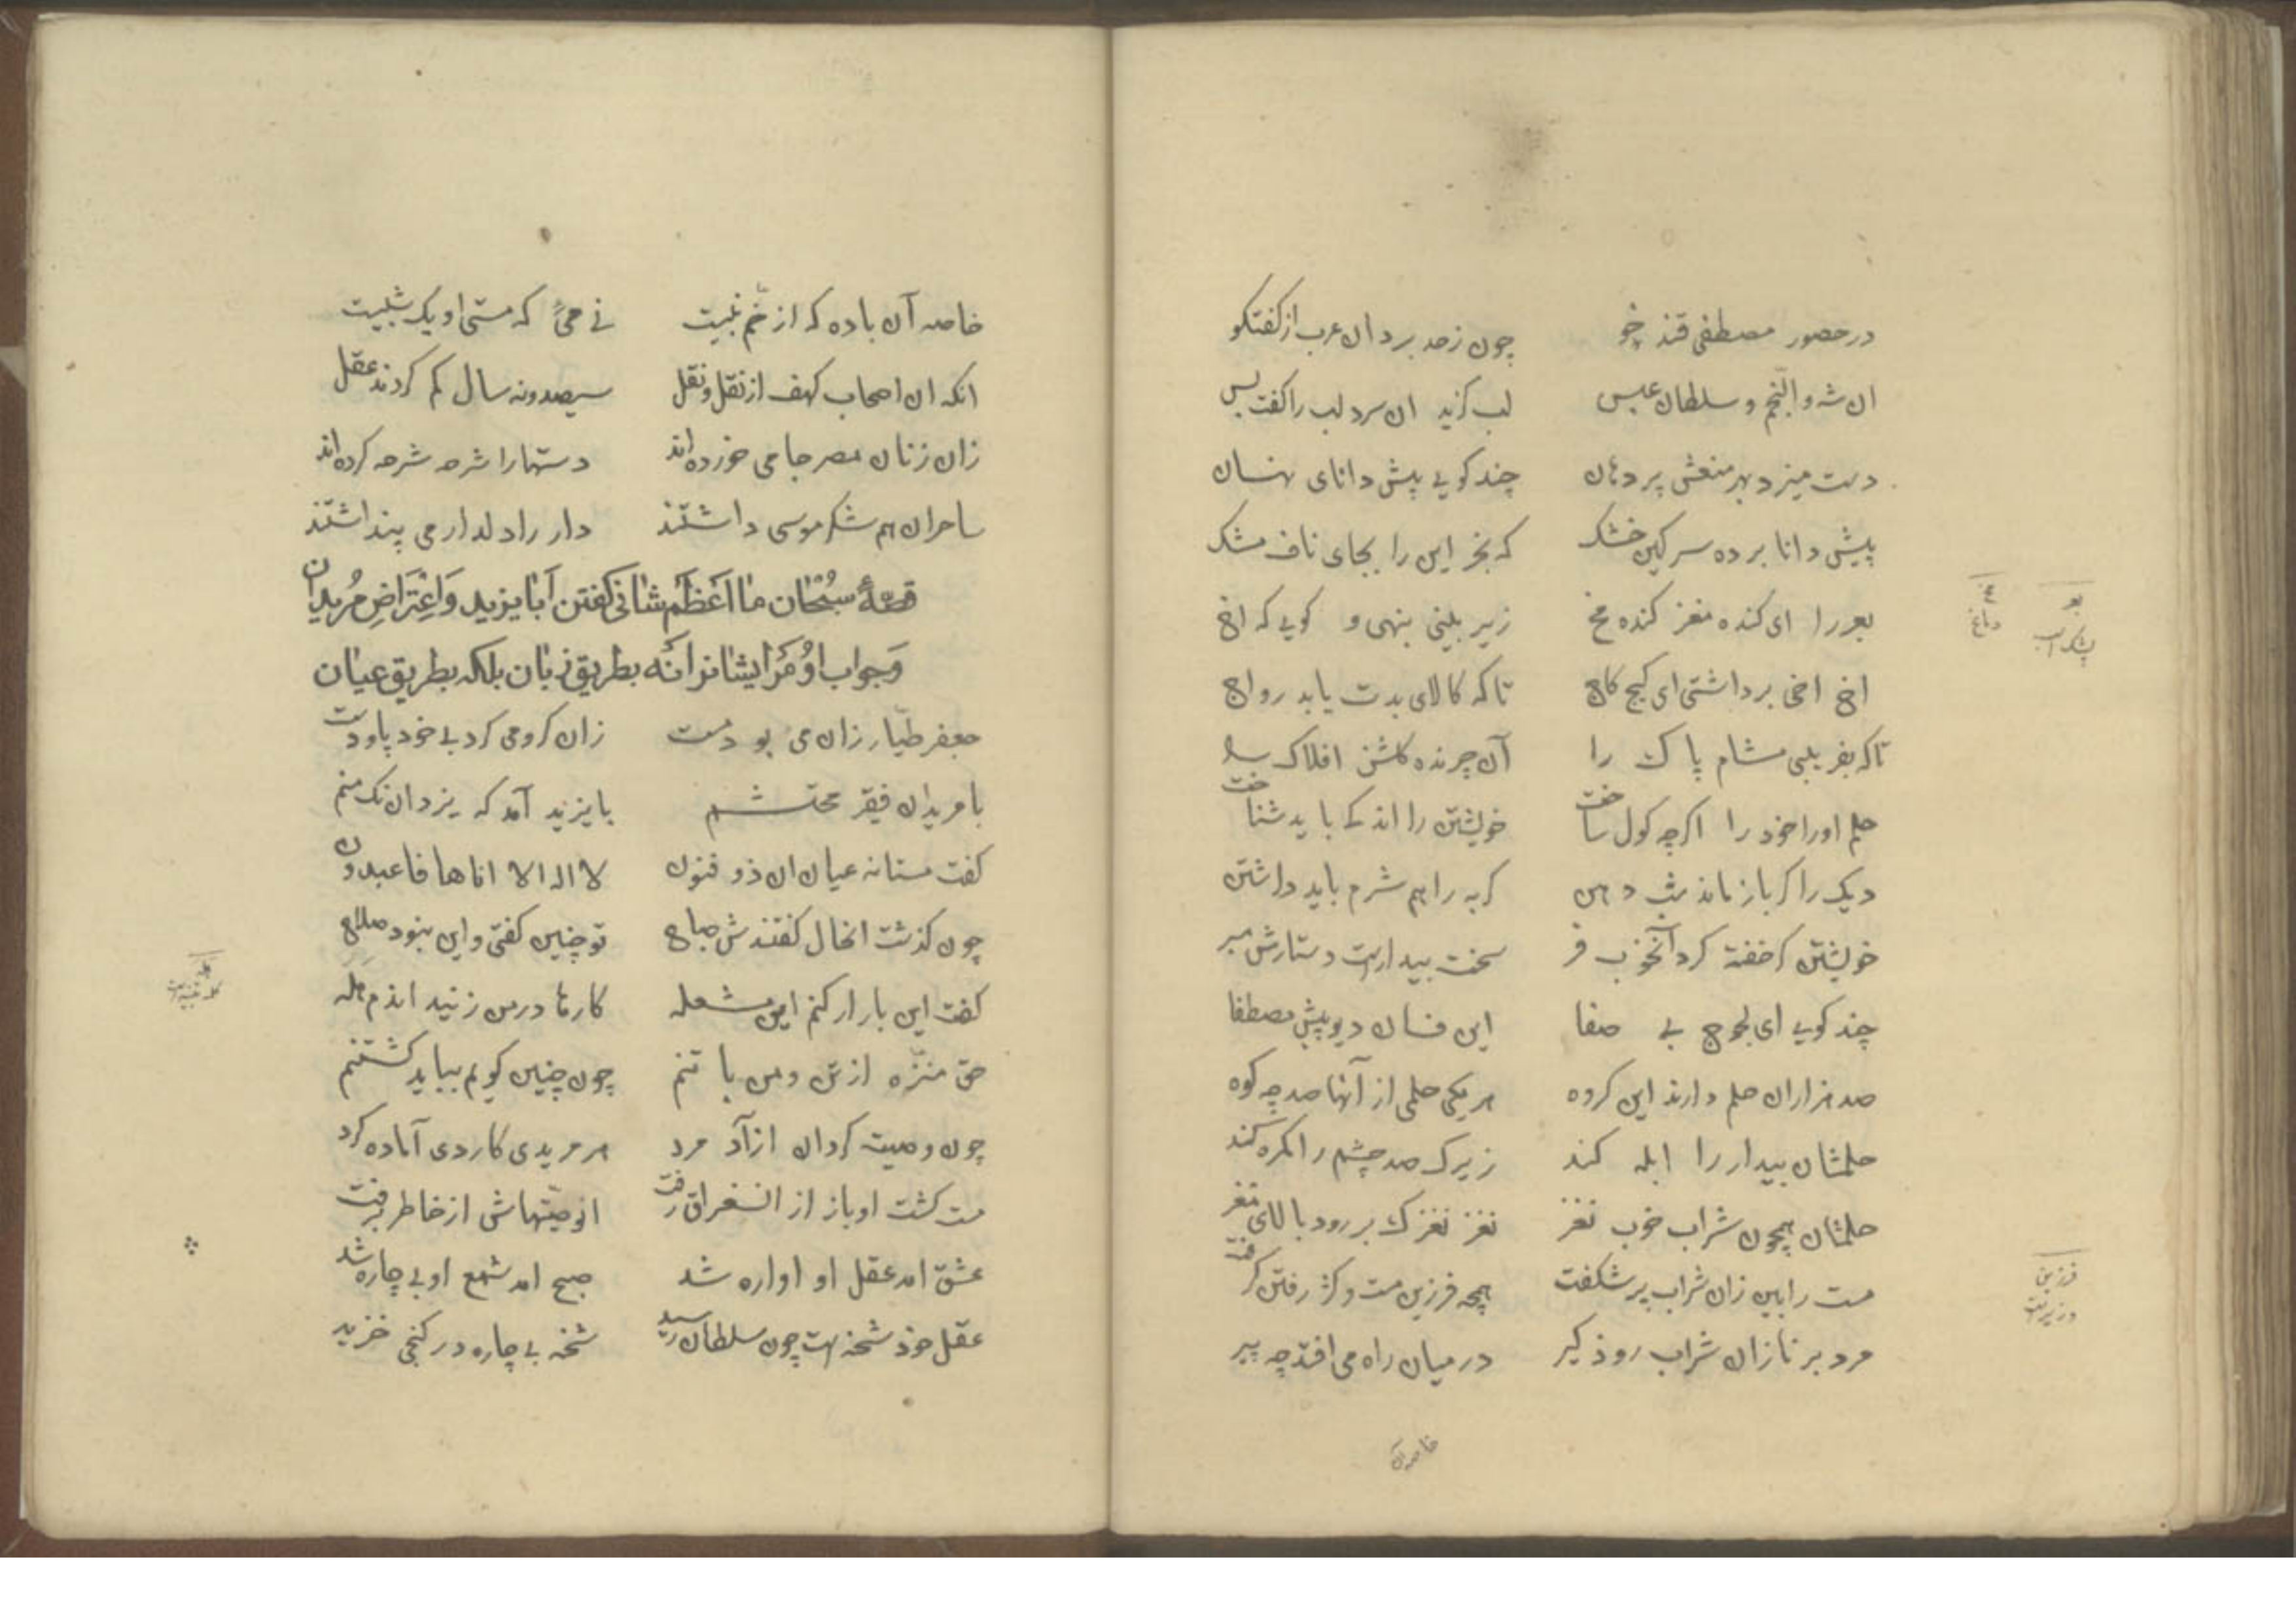 در حضور مصطفی قند خو چون ز حد برد ان عرب از کفتکو
ان شه والنجم و سلطان عبس لب کزید ان سرد لب را کفت بس
دست میزد بهر منعش بر دهان چند کویی پیش دانای نهان
پیش دانا برده سرکین خشک که بخر این را بجای ناف مشک
بعر را ای کنده مغز کنده مخ زیر بینی بنهی و کویی که اخ
اخ اخی برداشتی ای کیج کاج تا که کالای بدت یابد رواج
تا که بفریبی مشام پاک را آن چرنده کلشن افلاک را
حلم او را خود را اکر چه کول ساخت خویشتن را اندکی باید شناخت
دیک را کر باز ماند شب دهن کربه را هم شرم باید داشتن
خویشتن کر خفته کرد آن خوب فر سخت بیدارست دستارش مبر
چند کویی ای لجوج بی صفا این فسان دیو پیش مصطفا
صد هزاران حلم دارند این کروه هر یکی حلمی از آنها صد چو کوه
حلمشان بیدار را ابله کند زیرک صد چشم را کمره کند
حلمشان همچون شراب خوب نغز نغز نغزک بر رود بالای مغز
مست را بین زان شراب پر شکفت همچو فرزین مست و کژ رفتن کرفت
مرد برنا زان شراب زود کیر در میان راه می افتد چو پیر
بعر
پشک
مخ
دماغ
فرزین
وزیر
خاصه آن
خاصه آن باده که از خم نبیست نی میی که مستی او یک شبیست
انکه ان اصحاب کهف از نقل و نقل سیصد و نه سال کم کردند عقل
زان زنان مصر جامی خورده اند دستها را شرحه شرحه کرده اند
ساحران هم سکر موسی داشتند دار را دلدار می پنداشتند
قصهٔ سبحان ما اعظم شانی کفتن ابا یزید و اعتراض مریدان
و جواب او مر ایشانرا نه بطریق زبان بلکه بطریق عیان
جعفر طیار زان می بود مست زان کرو می کرد بی خود پا و دست
با مریدان فقیر محتشم بایزید آمد که یزدان نک منم
کفت مستانه عیان ان ذو فنون لا اله الا انا ها فاعبدون
چون کذشت انحال کفتندش صباح تو چنین کفتی و این نبود صلاح
کفت این بار ار کنم این مشعله کاردها در من زنید اندم هله
حق منزه از تن و من با تنم چون چنین کویم بباید کشتنم
چون وصیت کرد ان ازاد مرد هر مریدی کاردی آماده کرد
مست کشت او باز از ان سغراق رفت ان وصیتهاش از خاطر برفت
عشق امد عقل او اواره شد صبح امد شمع او بی چاره شد
عقل خود شحنه ست چون سلطان رسید شحنه بی چاره در کنجی خزید
هله